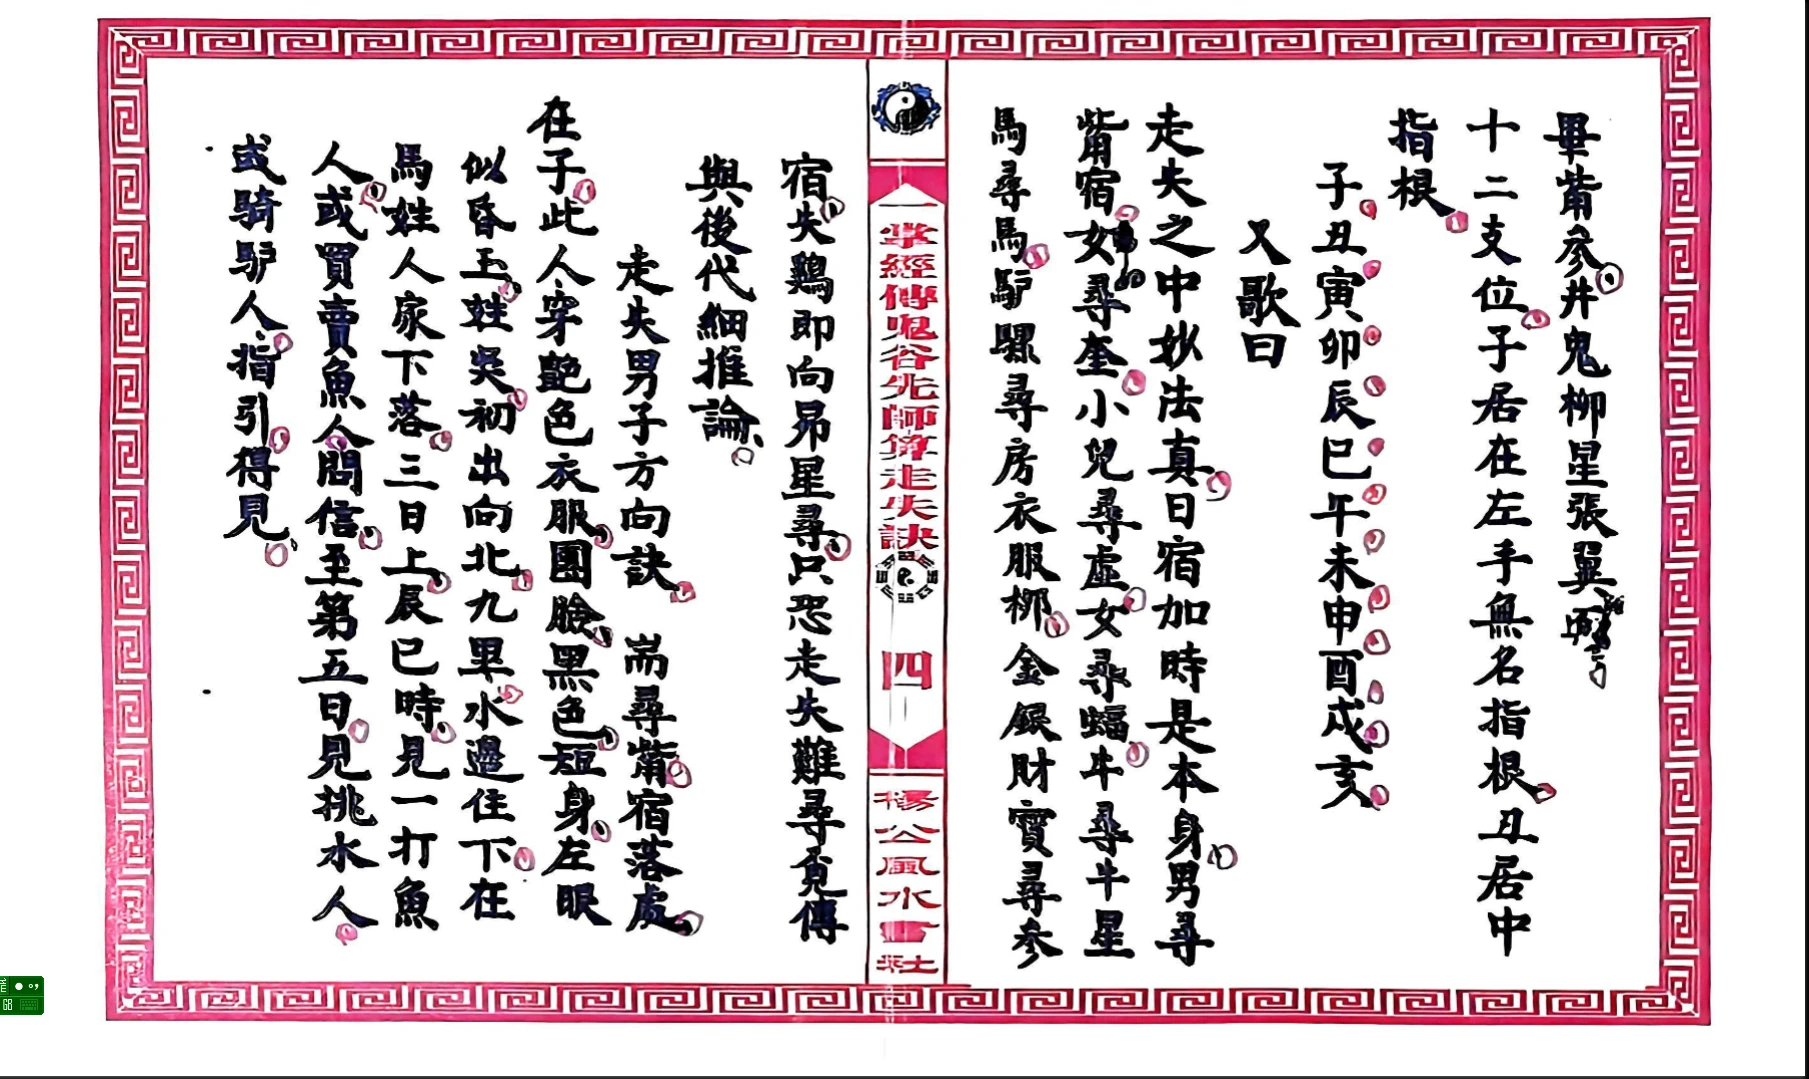 畢觜參井鬼柳星張翼
十二支位子居在左手無名指根丑居中
指根
子丑寅卯辰巳午未申酉戌亥
又歌曰
走失之中妙法真日宿加時是本身男尋
觜宿女尋奎小兒尋虛女尋蝠牛尋牛星
馬尋馬驢騾尋房衣服柳金銀財寶尋參
一掌經傳鬼谷先師算走失訣
四
楊公風水書社
宿失鷄即向昴星尋只恐走失難尋覓傳
與後代細推論
走失男子方向訣 耑尋觜宿落處
在子此人穿艷色衣服團臉黑色短身左眼
似昏王姓吳初出向北九里水邊住下在
馬姓人家下落三日上辰巳時見一打魚
人或買賣魚人問信至第五日見挑水人
或騎驴人指引得見